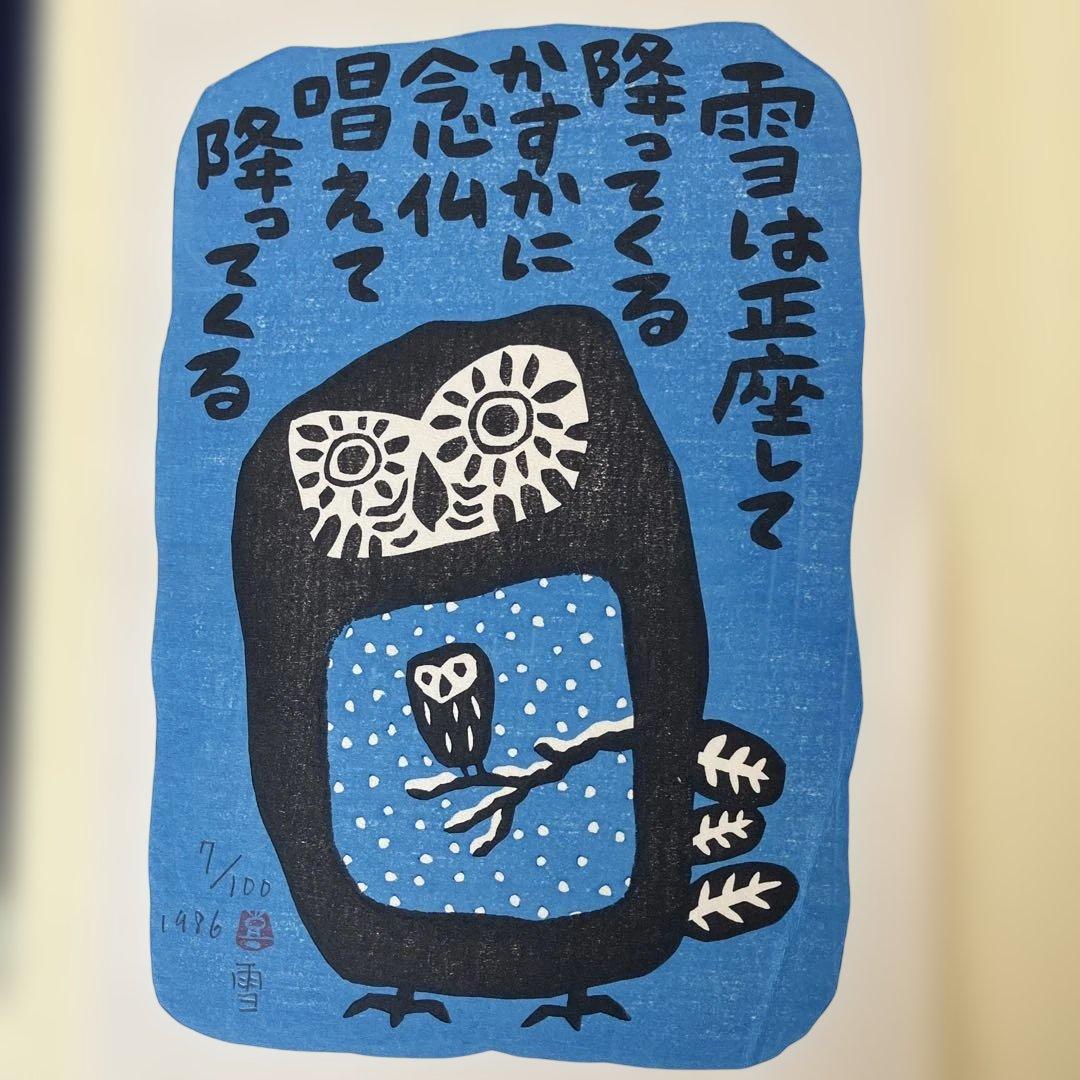 雪は正座して
降ってくる
かすかに
念仏
唱えて
降ってくる
7/100
1986
雪